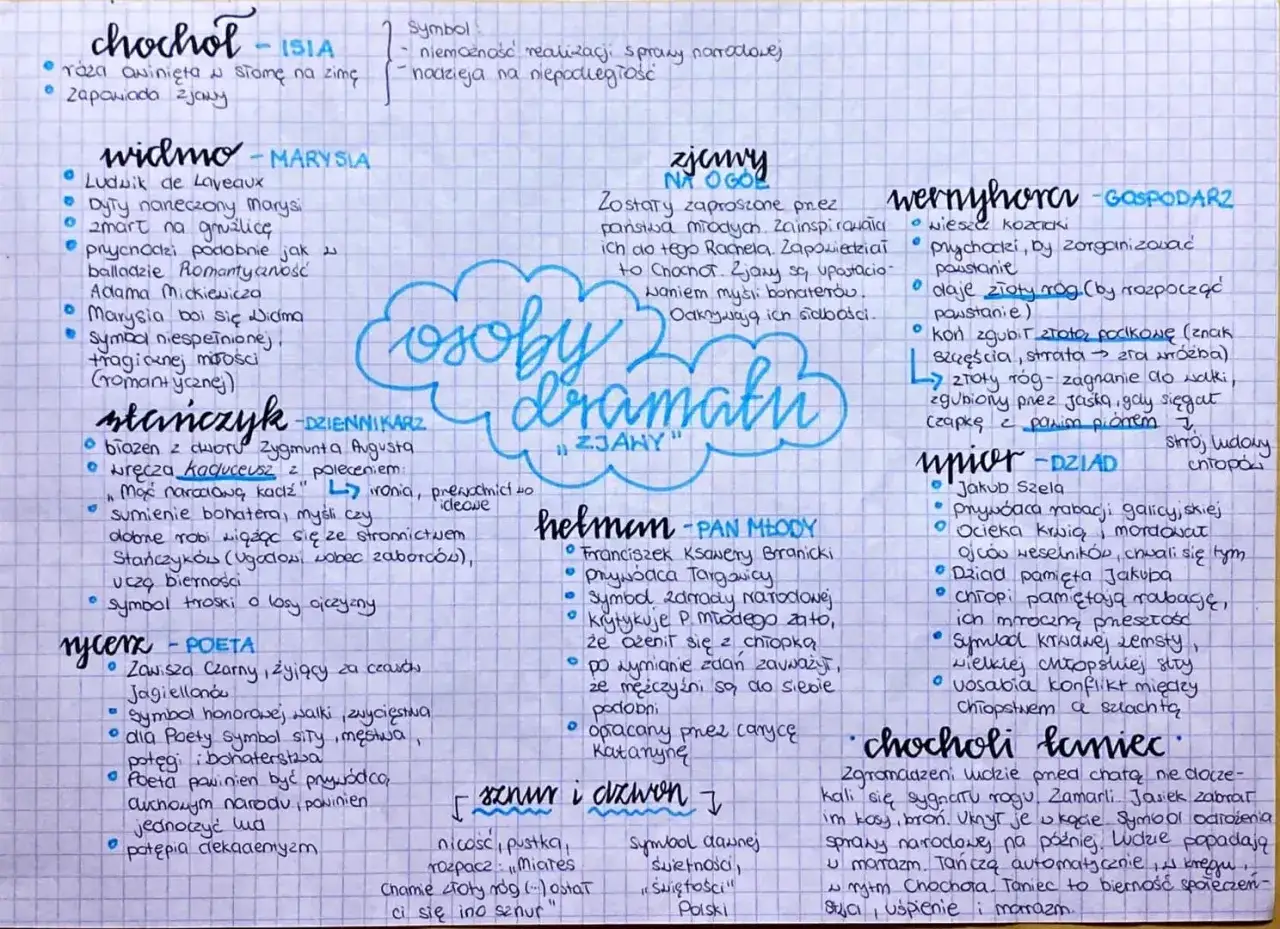 chochoł - ISIA
• róża owinięta w słomę na zimę
• zapowiada zjawy
symbol:
- niemożność realizacji sprawy narodowej
- nadzieja na niepodległość
widmo - MARYSIA
• Ludwik de Laveaux
• były narzeczony Marysi
• zmarł na gruźlicę
• przychodzi podobnie jak w
balladzie Romantyczność
Adama Mickiewicza
• Marysia boi się widma
• symbol niespełnionej,
tragicznej miłości
(romantycznej)
zjawy
NA OGÓŁ
Zostały zaproszone przez
państwa młodych. Zainspirowała
ich do tego Rachela. Zapowiedział
to Chochoł. Zjawy są upostacio-
waniem myśli bohaterów.
Odkrywają ich słabości.
wernyhora - GOSPODARZ
• wieszcz kozacki
• przychodzi, by zorganizować
powstanie
• daje złoty róg (by rozpocząć
powstanie)
• koń zgubił złotą podkowę (znak
szczęścia, strata → zła wróżba)
↳ złoty róg - zagrzanie do walki,
zgubiony przez Jaśka, gdy sięgał
czapkę z pawim piórem ↓
strój ludowy
chłopów
osoby
dramatu
"ZJAWY"
stańczyk - DZIENNIKARZ
• błazen z dworu Zygmunta Augusta
• wręcza kaduceusz z poleceniem:
„Mąć narodową kadź" ↳ ironia, przewodnictwo
ideowe
• sumienie bohatera, myśli czy
dobrze robi wiążąc się ze stronnictwem
Stańczyków (ugodowi wobec zaborców),
uczą bierności
• symbol troski o losy ojczyzny
hetman - PAN MŁODY
• Franciszek Ksawery Branicki
• przywódca Targowicy
• symbol zdrady narodowej
• krytykuje P. Młodego za to,
że ożenił się z chłopką
• po wymianie zdań zauważył,
że mężczyźni są do siebie
podobni
• opłacany przez carycę
Katarzynę
upiór - DZIAD
• Jakub Szela
• przywódca rabacji galicyjskiej
• Ocieka krwią, mordował
ojców weselników, chwali się tym
• Dziad pamięta Jakuba
• chłopi pamiętają rabację,
ich mroczną przeszłość
• symbol krwawej zemsty,
wielkiej chłopskiej siły
• uosabia konflikt między
chłopstwem a szlachtą
rycerz - POETA
• Zawisza Czarny, żyjący za czasów
Jagiellonów
• symbol honorowej walki, zwycięstwa
• dla Poety symbol siły, męstwa,
potęgi i bohaterstwa
• Poeta powinien być przywódcą
duchowym narodu, powinien
jednoczyć lud
• potępia dekadentyzm
sznur i dzwon
nicość, pustka,
rozpacz: „Miałeś
Chamie złoty róg (...) ostał
ci się ino sznur"
symbol dawnej
świetności,
„świętości"
Polski
chocholi taniec
Zgromadzeni ludzie przed chatą nie docze-
kali się sygnału rogu. Zamarli. Jasiek zabrał
im kosy, broń. Ukrył je w kącie. Symbol odłożenia
sprawy narodowej na później. Ludzie popadają
w marazm. Tańczą automatycznie, w kręgu,
w rytm Chochoła. Taniec to bierność społeczeń-
stwa, uśpienie i marazm.